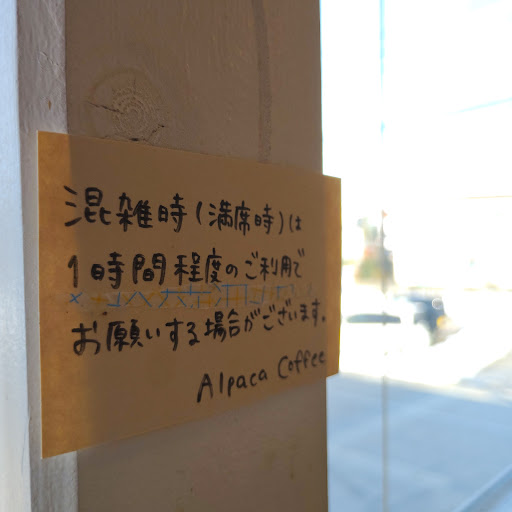 混雑時(満席時)は
1時間程度のご利用で
お願いする場合がございます。
Alpaca Coffee